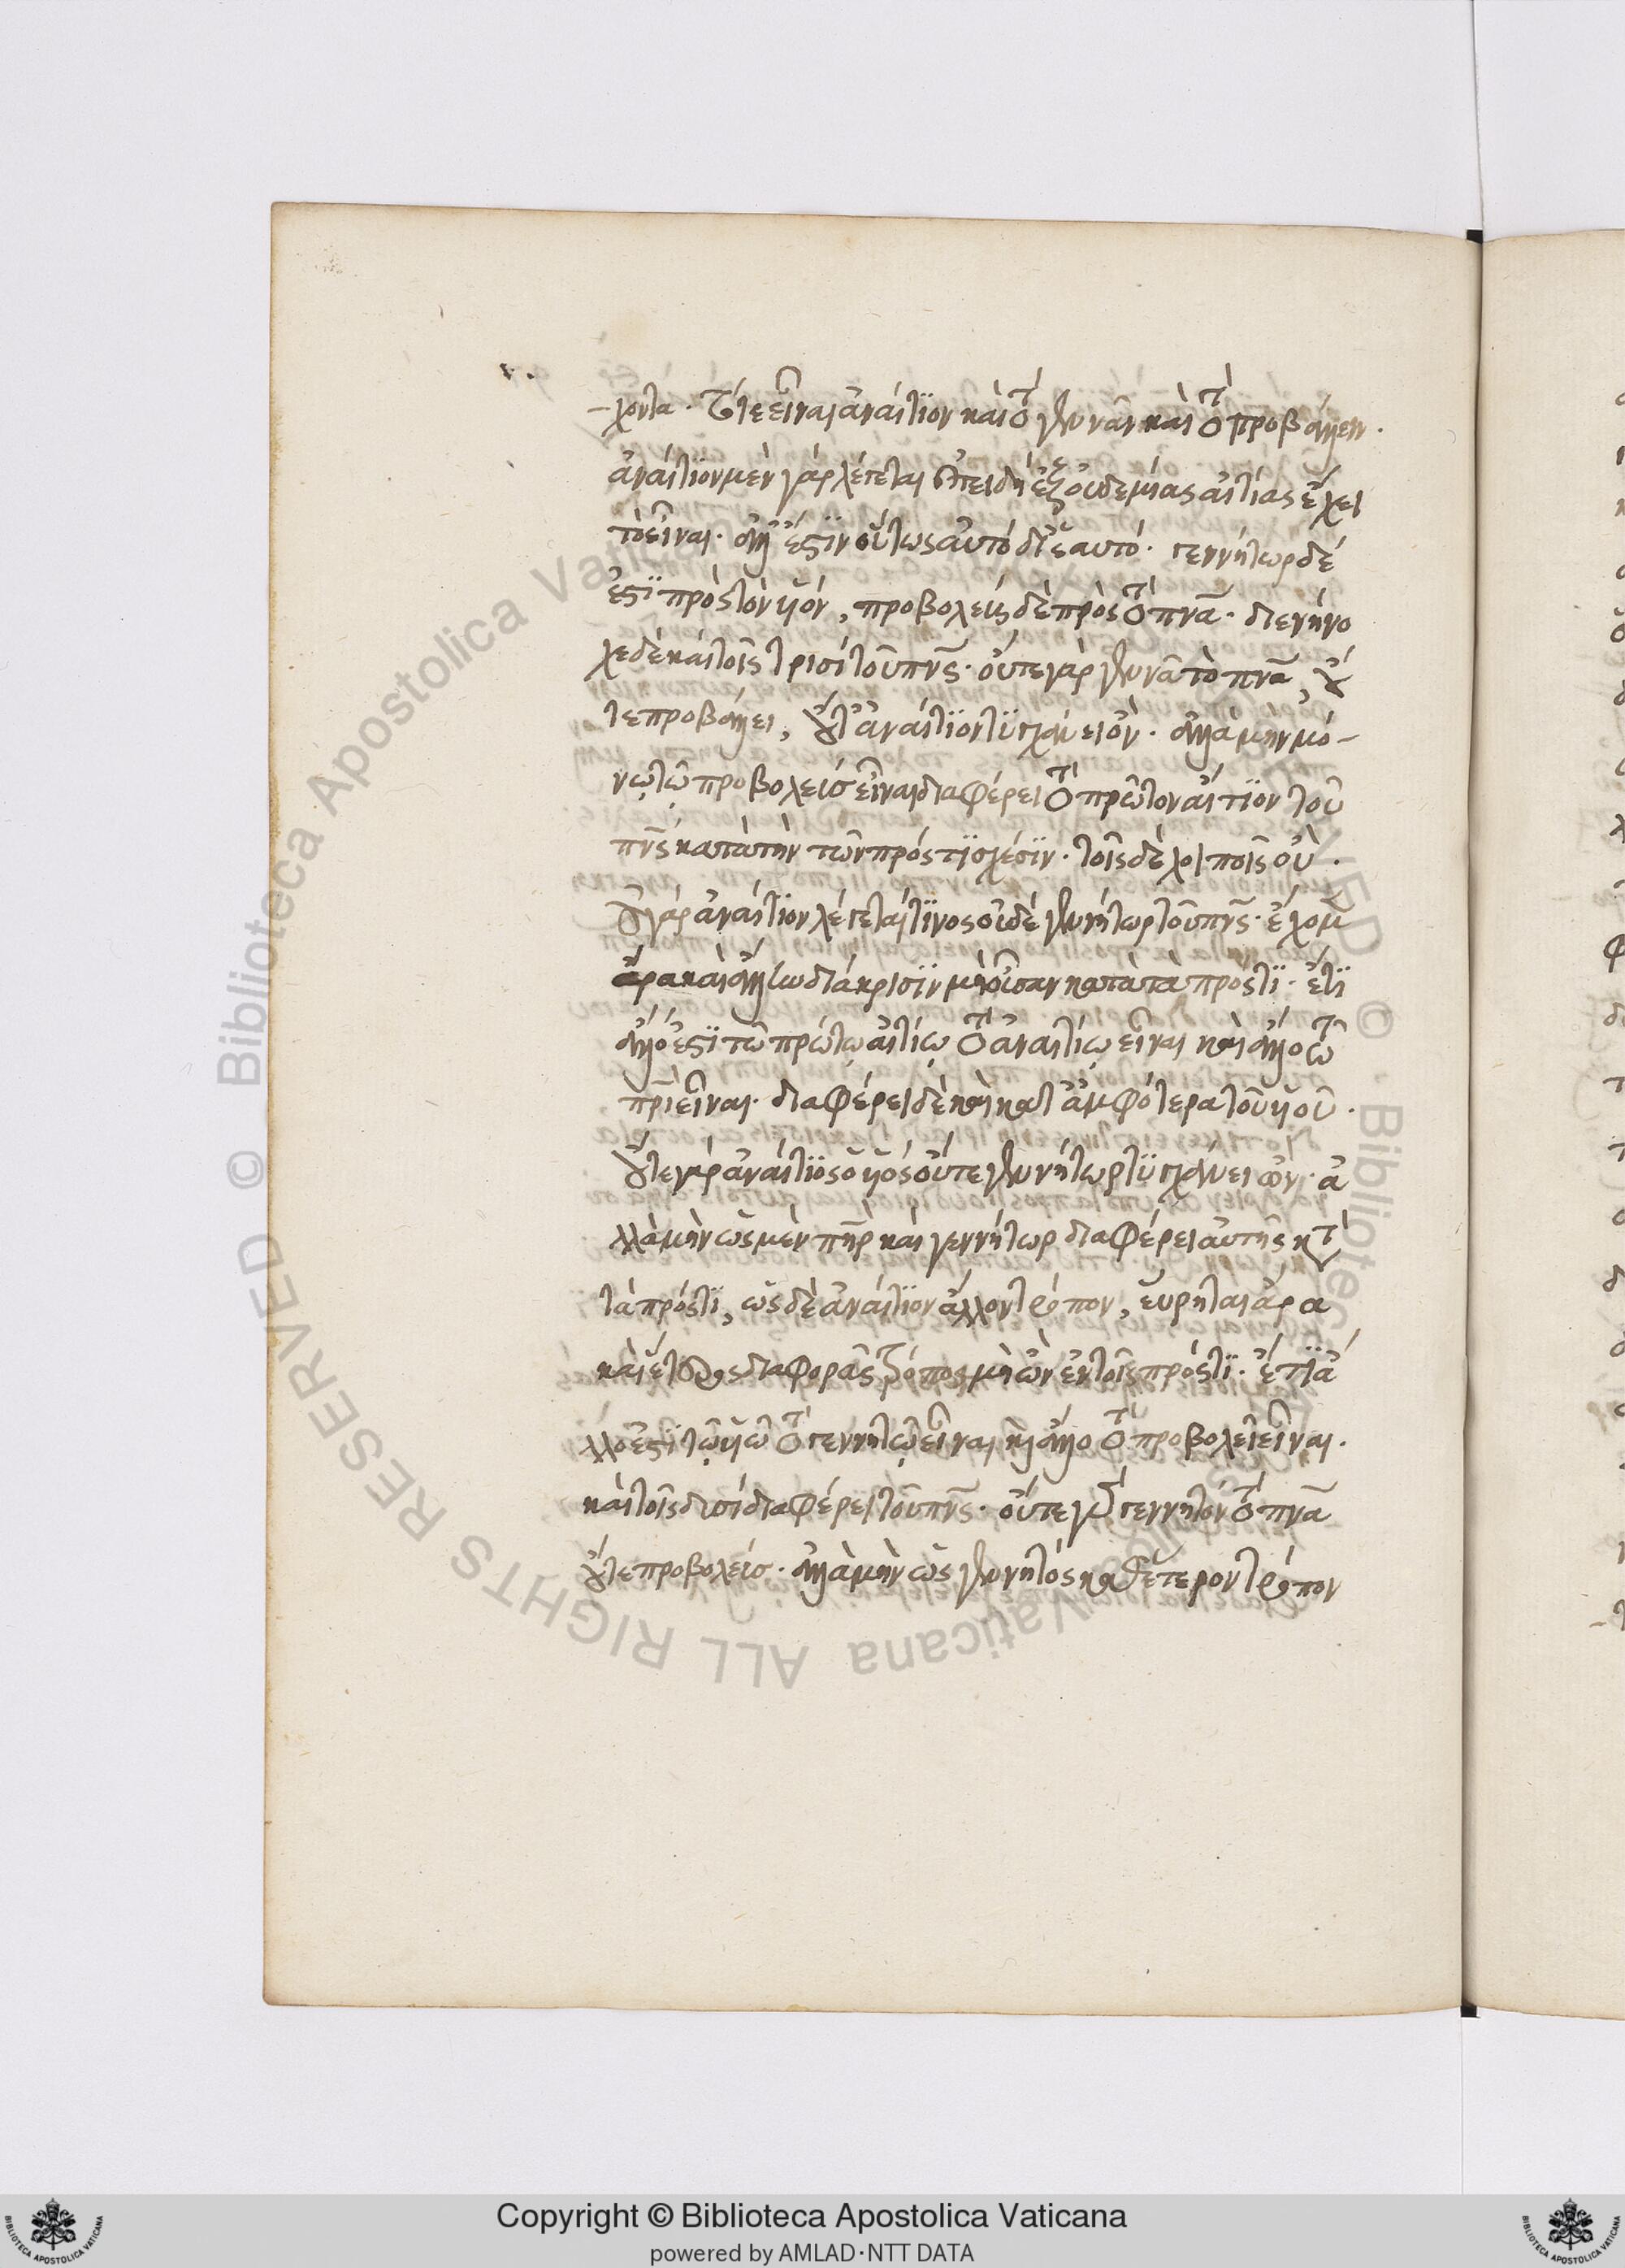 -χοντα. τό τε εἶναι ἀναίτιον καὶ τὸ γεννᾶν καὶ τὸ προβάλλειν.
ἀναίτιον μὲν γὰρ λέγεται ἐπειδὴ ἐξ οὐδεμίας αἰτίας ἔχει
τὸ εἶναι. ἀλλ' ἔστιν οὕτως αὐτὸ δι' ἑαυτό. γεννήτωρ δέ
ἐστι πρὸς τὸν υἱόν, προβολεὺς δὲ πρὸς τὸ πνα. διενήνο
χε δὲ καὶ τοῖς τρισὶ τοῦ πνς. οὔτε γὰρ γεννᾶ τὸ πνα, οὔ
τε προβάλλει, οὔτ' ἀναίτιον τυγχάνει ὄν. ἀλλὰ μὴν μό-
νῳ τῷ προβολεὺς εἶναι διαφέρει τὸ πρῶτον αἴτιον τοῦ
πνς κατὰ τὴν τῶν πρός τι σχέσιν. τοῖς δὲ λοιποῖς οὔ.
οὐ γὰρ ἀναίτιον λέγεται τινος οὐδὲ γεννήτωρ τοῦ πνς. ἔχομεν
ἄρα καὶ ἄλλην διάκρισιν μὴ οὖσαν κατὰ τὰ πρός τι. ἔτι
ἄλλο ἐστὶ τῷ πρώτῳ αἰτίῳ τὸ ἀναιτίῳ εἶναι καὶ ἄλλο τῶ
πρι εἶναι. διαφέρει δὲ καὶ κατ' ἀμφότερα τοῦ υἱοῦ.
οὔτε γὰρ ἀναίτιος ὁ υἱός οὔτε γεννήτωρ τυγχάνει ὤν. ἀ
λλὰ μὴν ὡς μὲν πηρ καὶ γεννήτωρ διαφέρει αὐτῆς κατὰ
τὰ πρός τι, ὡς δὲ ἀναίτιον ἄλλον τρόπον, εὕρηται ἄρα
καὶ ἕτερος διαφορᾶς τρόπος μὴ ὢν ἐν τοῖς πρός τι. ἔτι ἄ
λλο ἐστὶ τῷ υἱῷ τὸ γεννητῷ εἶναι κὶ ἄλλο τὸ προβολεῖ εἶναι.
καὶ τοῖς δυσὶ διαφέρει τοῦ πνς. οὔτε γὰρ γεννητὸν τὸ πνα
οὔτε προβολεύς. ἀλλὰ μὴν ὡς γεννητὸς καθ' ἕτερον τρόπον
Copyright © Biblioteca Apostolica Vaticana
powered by AMLAD·NTT DATA
© Biblioteca Apostolica Vaticana ALL RIGHTS RESERVED